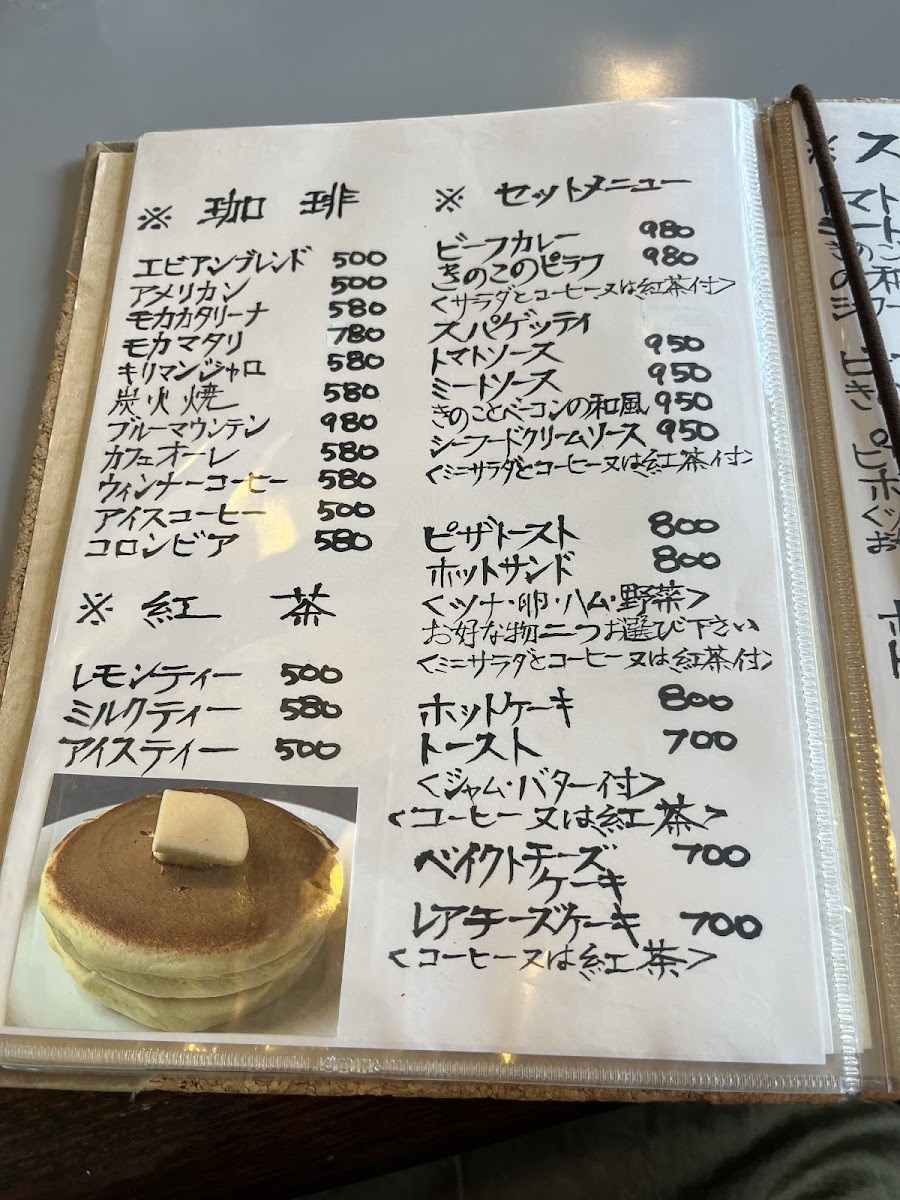 ※ 珈琲
エビアンブレンド 500
アメリカン 500
モカカタリーナ 580
モカマタリ 780
キリマンジャロ 580
炭火焼 580
ブルーマウンテン 980
カフェオーレ 580
ウィンナーコーヒー 580
アイスコーヒー 500
コロンビア 580
※ 紅茶
レモンティー 500
ミルクティー 580
アイスティー 500
※ セットメニュー
ビーフカレー 980
きのこのピラフ 980
<サラダとコーヒー又は紅茶付>
スパゲッティ
トマトソース 950
ミートソース 950
きのことベーコンの和風 950
シーフードクリームソース 950
<ミニサラダとコーヒー又は紅茶付>
ピザトースト 800
ホットサンド 800
<ツナ・卵・ハム・野菜>
お好な物二つお選び下さい
<ミニサラダとコーヒー又は紅茶付>
ホットケーキ 800
トースト 700
<ジャム・バター付>
<コーヒー又は紅茶>
ベイクトチーズ 700
ケーキ
レアチーズケーキ 700
<コーヒー又は紅茶>
※ ス